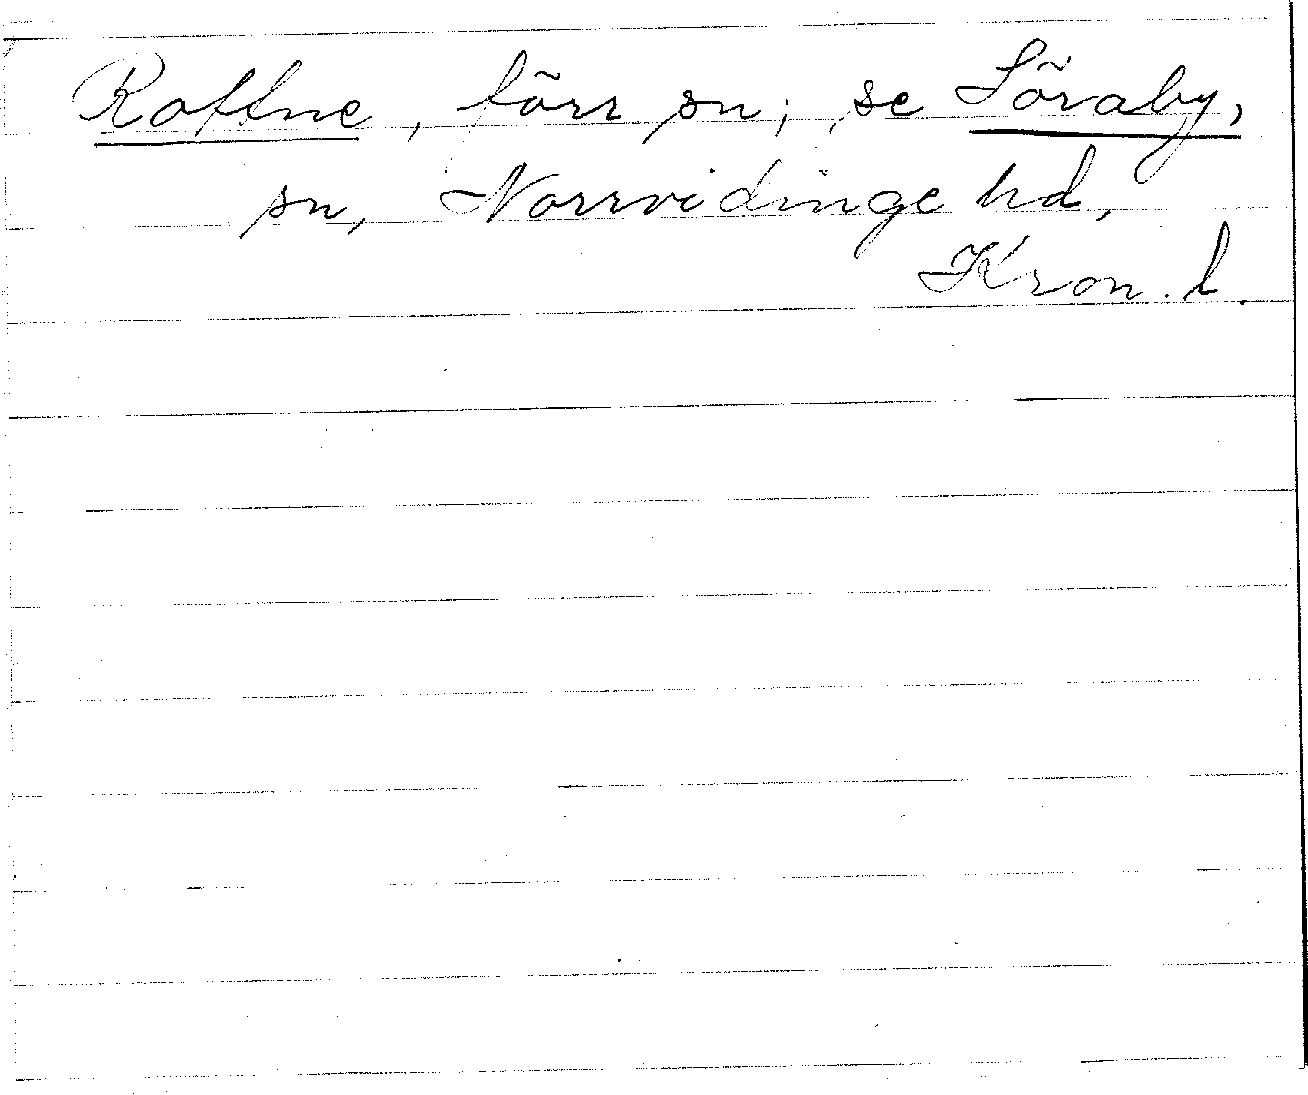 Rottne, förr sn; se Söraby,
sn, Norrvidinge hd,
Kron. l.